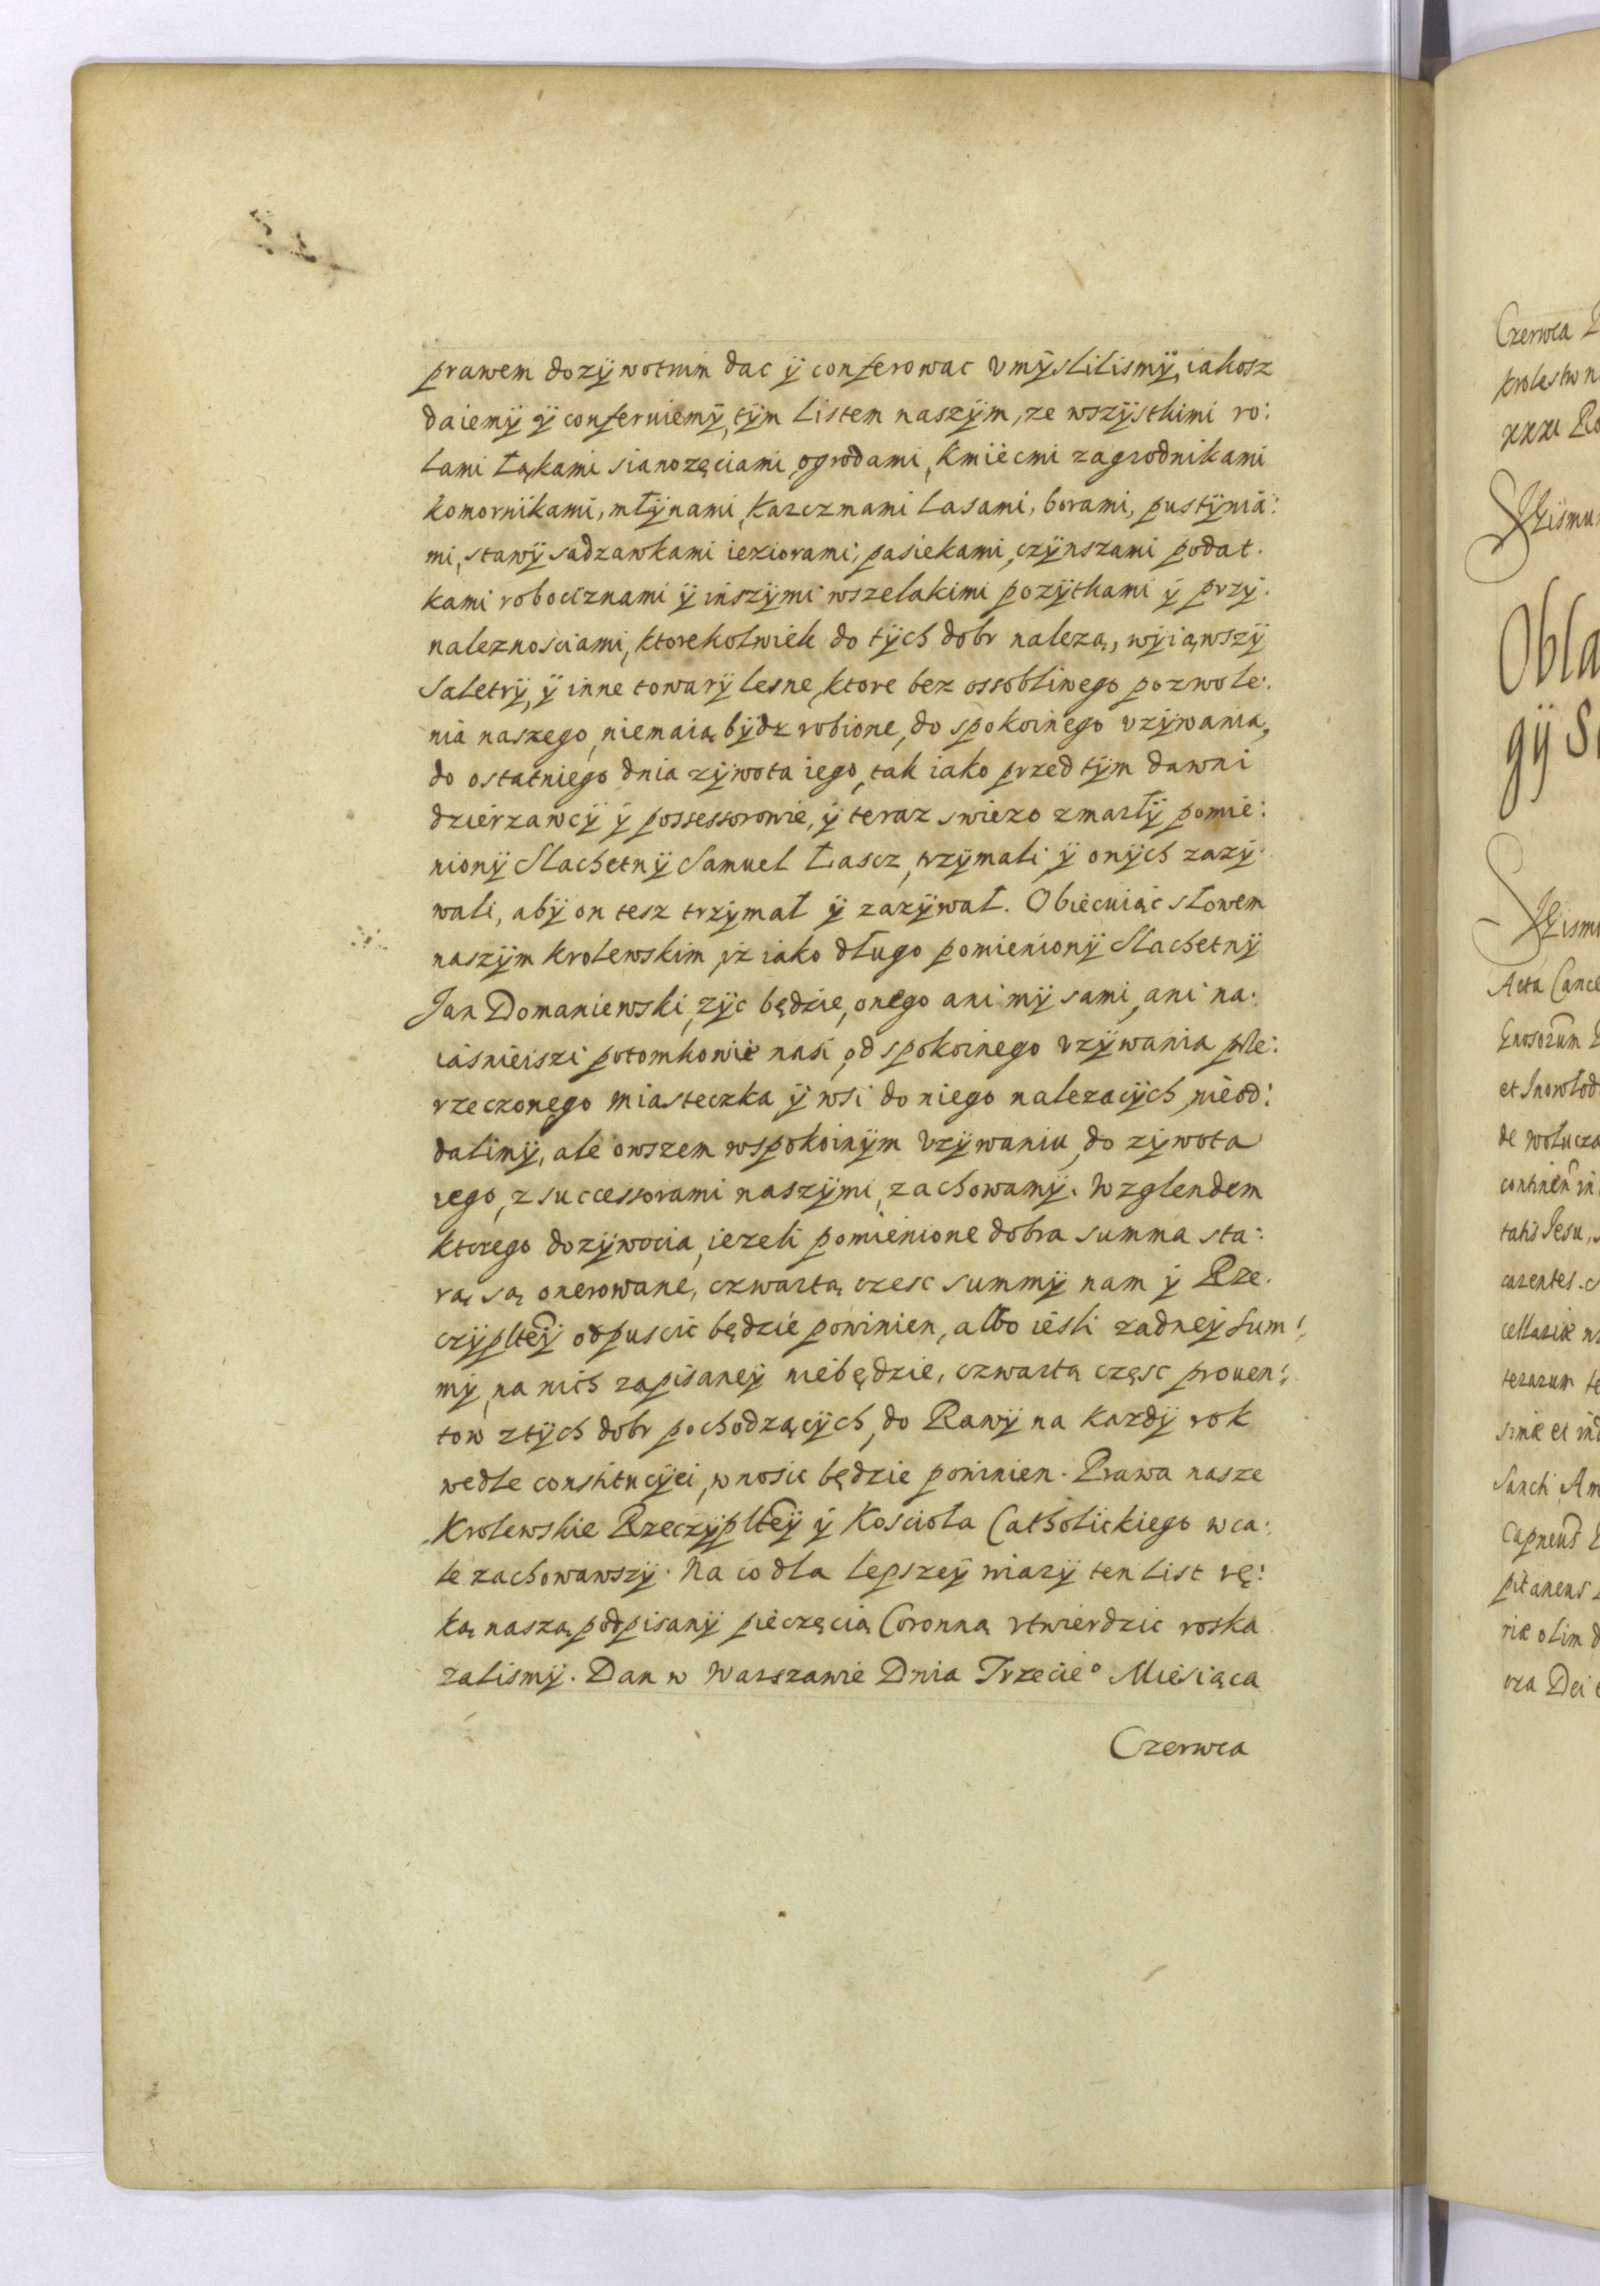 prawem dozÿwotnim dac ÿ conferowac vmÿslilismÿ, iakosz
daiemÿ ÿ conferuiemÿ, tÿm listem naszÿm, ze wszÿstkimi ro:
lami łąkami sianozęciami, ogrodami, kmiecmi zagrodnikami
komornikami, młÿnami, karczmami lasami, borami, pustÿnia:
mi, stawÿ sadzawkami ieziorami, pasiekami, czÿnszami podat.
kami robociznami ÿ inszÿmi wszelakimi pozÿtkami ÿ przÿ.
naleznosciami, ktorekolwiek do tÿch dobr nalezą, wÿiąwszÿ
Saletrÿ, ÿ inne towarÿ lesne, ktore bez ossobliwego pozwole:
nia naszego, niemaią bÿdz robione, do spokoinego vzÿwania,
do ostatniego dnia zÿwota iego, tak iako przed tÿm dawni
dzierzawcÿ ÿ possessorowie, ÿ teraz swiezo zmarłÿ pomie:
nionÿ Slachetnÿ Samuel Łascz, trzÿmali ÿ onÿch zazÿ.
wali, abÿ on tesz trzÿmał ÿ zazÿwał. Obiecuiąc słowem
naszÿm krolewskim, iz iako długo pomienionÿ Slachetnÿ
Jan Domaniewski, zÿc będzie, onego ani mÿ sami, ani na.
iasnieiszi potomkowie nasi, od spokoinego vzÿwania prze:
rzeczonego miasteczka ÿ wsi do niego nalezacÿch, nieod:
dalimÿ, ale owszem wspokoinÿm vzÿwaniu, do zÿwota
iego, z successorami naszÿmi, zachowamÿ. Wzglendem
ktorego dozÿwocia, iezeli pomienione dobra summa sta:
rą są onerowane, czwartą czesc summÿ nam ÿ Rze.
czÿplteÿ odpuscic będzie powinien, albo iesli zadneÿ sum:
mÿ, na nich zapisaneÿ niebędzie, czwartą częsc prouen:
tow ztÿch dobr pochodzącÿch, do Rawÿ na kazdÿ rok
wedle constitucÿei, wnosic będzie powinien. Prawa nasze
Krolewskie Rzeczÿplteÿ ÿ Kosciola Catholickiego wca.
le zachowawszÿ. Na co dla lepszeÿ wiarÿ ten list rę:
ką naszą podpisanÿ pieczęcią Coronną vtwierdzic roska
zalismÿ. Dan w Warszawie Dnia Trzecie° Miesiąca
Czerwca
Czerwca
krolestw
xxxi
Obla
gÿ
Acta
et Inowłod
de
tatis Jesu,
carentes.
simæ et
Sancti
olim
Dei